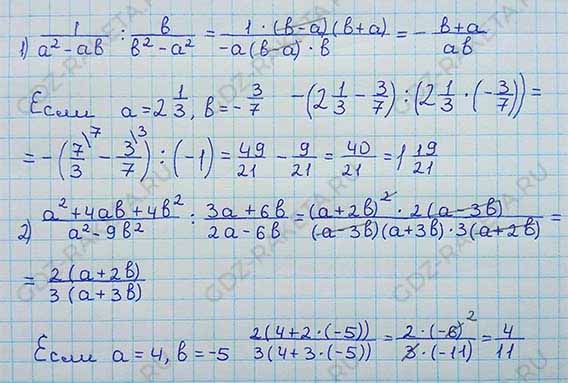 1) 1/(a² - ab) : b/(b² - a²) = (1 · (b - a)(b + a))/(-a(b - a) · b) = - (b + a)/(ab)
Если a = 2 1/3, b = - 3/7   -(2 1/3 - 3/7) : (2 1/3 · (- 3/7)) =
= -(7/3 \7 - 3/7 \3) : (-1) = 49/21 - 9/21 = 40/21 = 1 19/21
2) (a² + 4ab + 4b²)/(a² - 9b²) : (3a + 6b)/(2a - 6b) = ((a + 2b)² · 2(a - 3b))/((a - 3b)(a + 3b) · 3(a + 2b)) =
= 2(a + 2b)/3(a + 3b)
Если a = 4, b = -5   2(4 + 2 · (-5))/3(4 + 3 · (-5)) = 2 · (-6) 2/3 · (-11) = 4/11
GDZ-RAKETA.RU